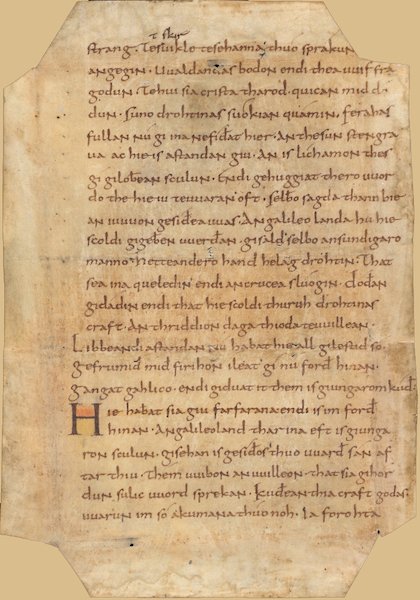 strang · Tesuikle tesehanna · thuo sprakun
angegin · Uualdandas bodon endi thea uuif fra
godun · Tehui sia crista tharod · quican mid do
dun · suno drohtinas suokian quamin · ferahas
fullan nu gi ina nefiđat hier · An thesun stengra
ua ac hie is astandan giu · An is lichamon thes
gi gilobean sculun · Endi gehuggiat thero uuor
do the hie iu teuuaran oft · selbo sagda thann hie
an iuuuon gesiđea uuas · An galileo landa hu hie
scoldi gigeban uuerđan · gisald selbo ansundigaro
manno · hetteandero hand helag drohtin · That
sea ina queledin endi ancrucea sluogin · dođan
gidadin endi that hie scoldi thuruh drohtinas
craft · An thriddion daga thioda teuuillean ·
Libbeandi astandan nu habat hie all gilestid so ·
gefrumid mid firihon ileat gi nu forđ hinan ·
gangat gahlico · endi giduat it them is giungarom kuđ ·
Hie habat sia giu farfarana endi is im forđ
hinan · An galileo land thar ina eft is giunga
ron sculun · gisehan is gesiđos thuo uuarđ san af
tar thiu · Them uuibon an uuilleon · that sia gihor
dun sulic uuord sprekan · kuđean thia craft godas
uuarun im so akumana thuo noh · Ia forohta